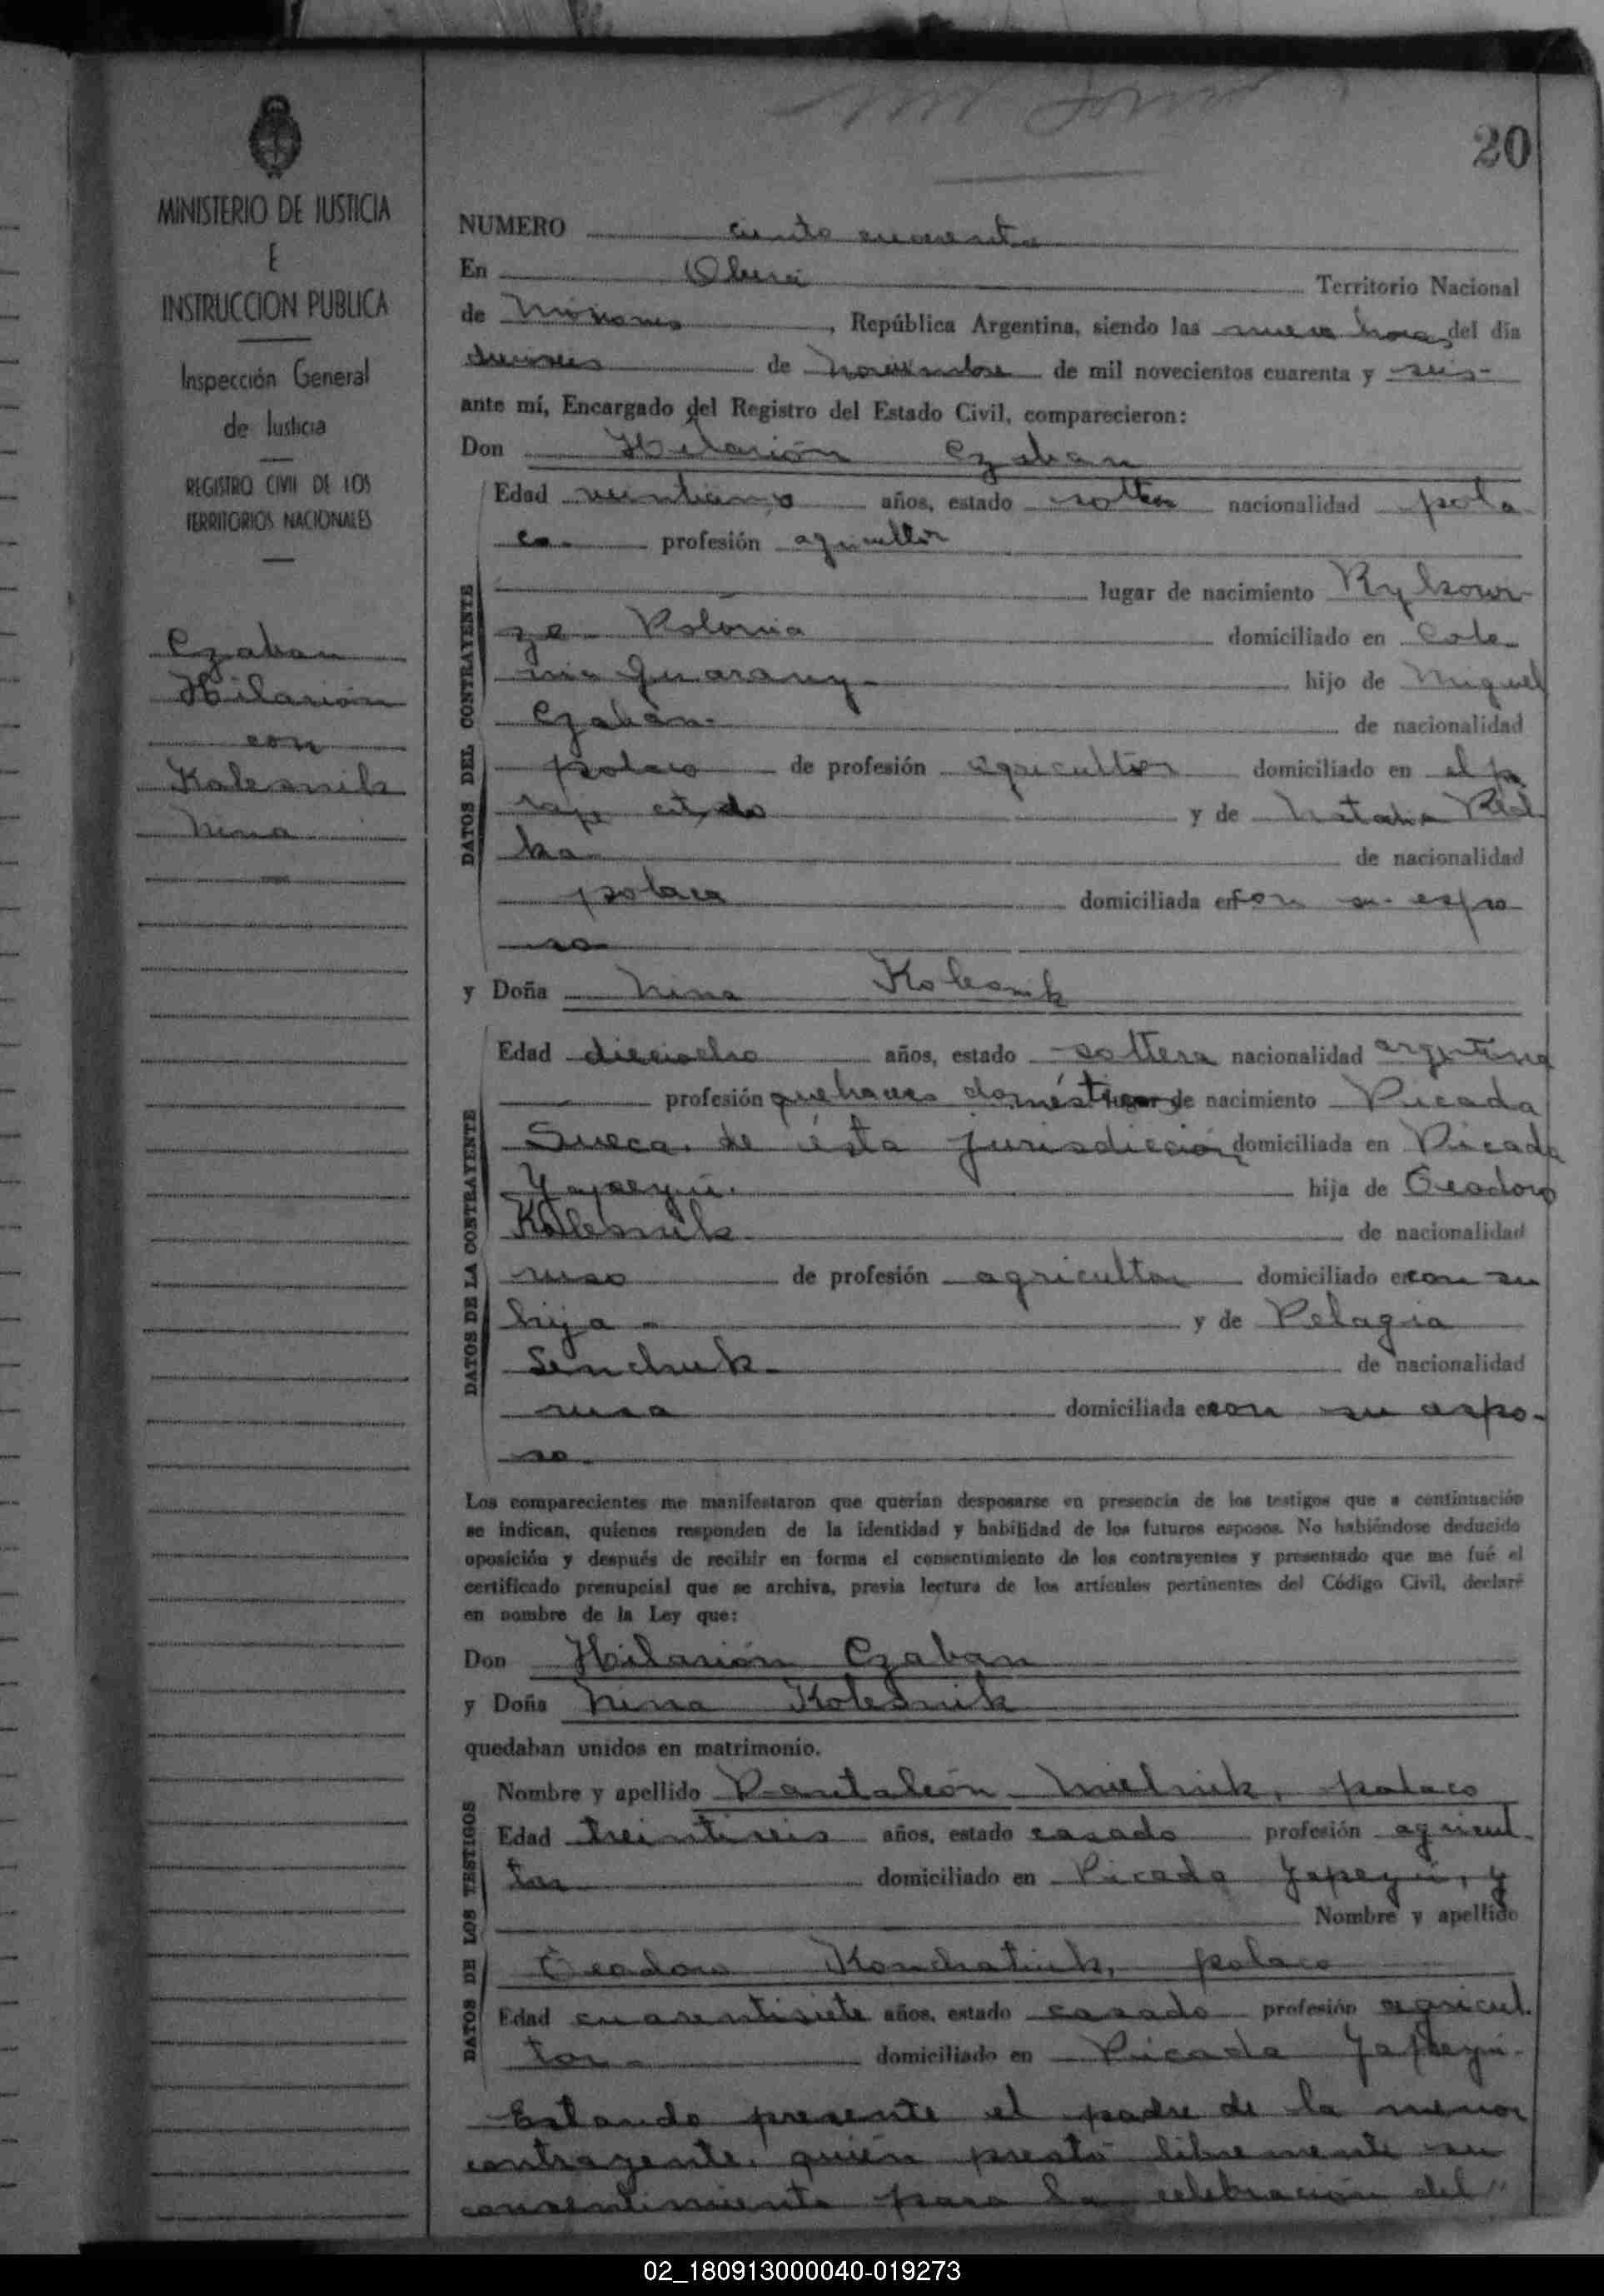 20
MINISTERIO DE JUSTICIA
E
INSTRUCCION PUBLICA
Inspección General
de Justicia
REGISTRO CIVIL DE LOS
TERRITORIOS NACIONALES
Czaban
Hilarión
con
Kolesnik
Nina
NUMERO ciento cuarenta
En Oberá Territorio Nacional
de Misiones, República Argentina, siendo las nueve horas del día
dieciseis de Noviembre de mil novecientos cuarenta y seis-
ante mí, Encargado del Registro del Estado Civil, comparecieron:
Don Hilarión Czaban
DATOS DEL CONTRAYENTE
Edad años, estado soltero nacionalidad pola
co- profesión agricultor
lugar de nacimiento
Polonia domiciliado en Colo-
nia Guarany- hijo de Miguel
Czaban- de nacionalidad
polaco de profesión agricultor domiciliado en el pa
raje citado y de Natalia
ka- de nacionalidad
polaca domiciliada en con su espo
so-
y Doña Nina Kolesnik
DATOS DE LA CONTRAYENTE
Edad dieciocho años, estado soltera nacionalidad argentina
profesión quehaceres domésticos lugar de nacimiento Picada
Sueca, de ésta jurisdicción, domiciliada en Picada
Yapeyú. hija de Teodoro
Kolesnik de nacionalidad
ruso de profesión agricultor domiciliado en con su
hija- y de Pelagia
Senchuk- de nacionalidad
rusa domiciliada en con su espo-
so-
Los comparecientes me manifestaron que querían desposarse en presencia de los testigos que a continuación
se indican, quienes responden de la identidad y habilidad de los futuros esposos. No habiéndose deducido
oposición y después de recibir en forma el consentimiento de los contrayentes y presentado que me fué el
certificado prenupcial que se archiva, previa lectura de los artículos pertinentes del Código Civil, declaré
en nombre de la Ley que:
Don Hilarión Czaban
y Doña Nina Kolesnik
quedaban unidos en matrimonio.
DATOS DE LOS TESTIGOS
Nombre y apellido Pantaleón Mielnik, polaco
Edad treintiseis años, estado casado profesión agricul-
tor domiciliado en Picada Yapeyú, y
Nombre y apellido
Teodoro Konchatiuk, polaco
Edad cuarentisiete años, estado casado profesión agricul-
tor- domiciliado en Picada Yapeyú-
Estando presente el padre de la menor
contrayente, quién prestó libremente su
consentimiento para la celebración del"
02_180913000040-019273